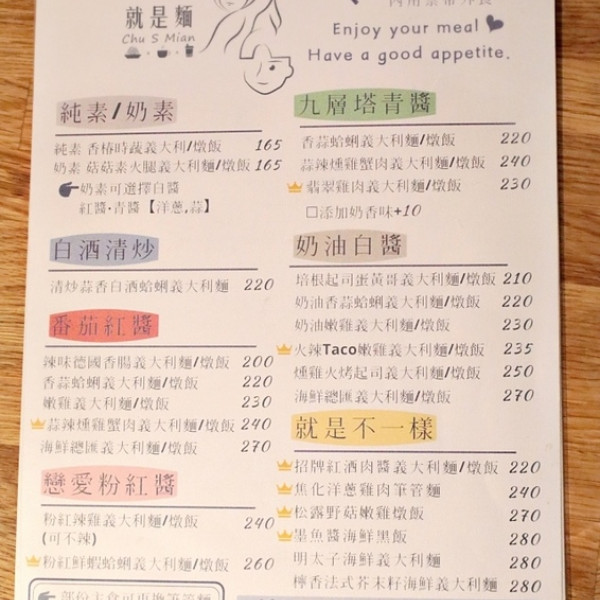 就是麵
Chu S Mian
Enjoy your meal
Have a good appetite.
純素/奶素
純素 香椿時蔬義大利/燉飯 165
奶素 菇菇素火腿義大利麵/燉飯 165
奶素可選擇白醬
紅醬·青醬【洋蔥,蒜】
白酒清炒
清炒蒜香白酒蛤蜊義大利麵 220
番茄紅醬
辣味德國香腸義大利麵/燉飯 200
香蒜蛤蜊義大利麵/燉飯 220
嫩雞義大利麵/燉飯 230
蒜辣燻雞蟹肉義大利麵/燉飯 240
海鮮總匯義大利麵/燉飯 270
戀愛粉紅醬
粉紅辣雞義大利麵/燉飯 240
(可不辣)
粉紅鮮蝦蛤蜊義大利麵/燉飯 260
九層塔青醬
香蒜蛤蜊義大利麵/燉飯 220
蒜辣燻雞蟹肉義大利麵/燉飯 240
翡翠雞肉義大利麵/燉飯 230
□添加奶香味+10
奶油白醬
培根起司蛋黃哥義大利麵/燉飯 210
奶油香蒜蛤蜊義大利麵/燉飯 220
奶油嫩雞義大利麵/燉飯 230
火辣Taco嫩雞義大利麵/燉飯 235
燻雞火烤起司義大利麵/燉飯 250
海鮮總匯義大利麵/燉飯 270
就是不一樣
招牌紅酒肉醬義大利麵/燉飯 220
焦化洋蔥雞肉筆管麵 240
松露野菇嫩雞燉飯 270
墨魚醬海鮮黑飯 280
明太子海鮮義大利麵 280
檸香法式芥末籽海鮮義大利麵 280